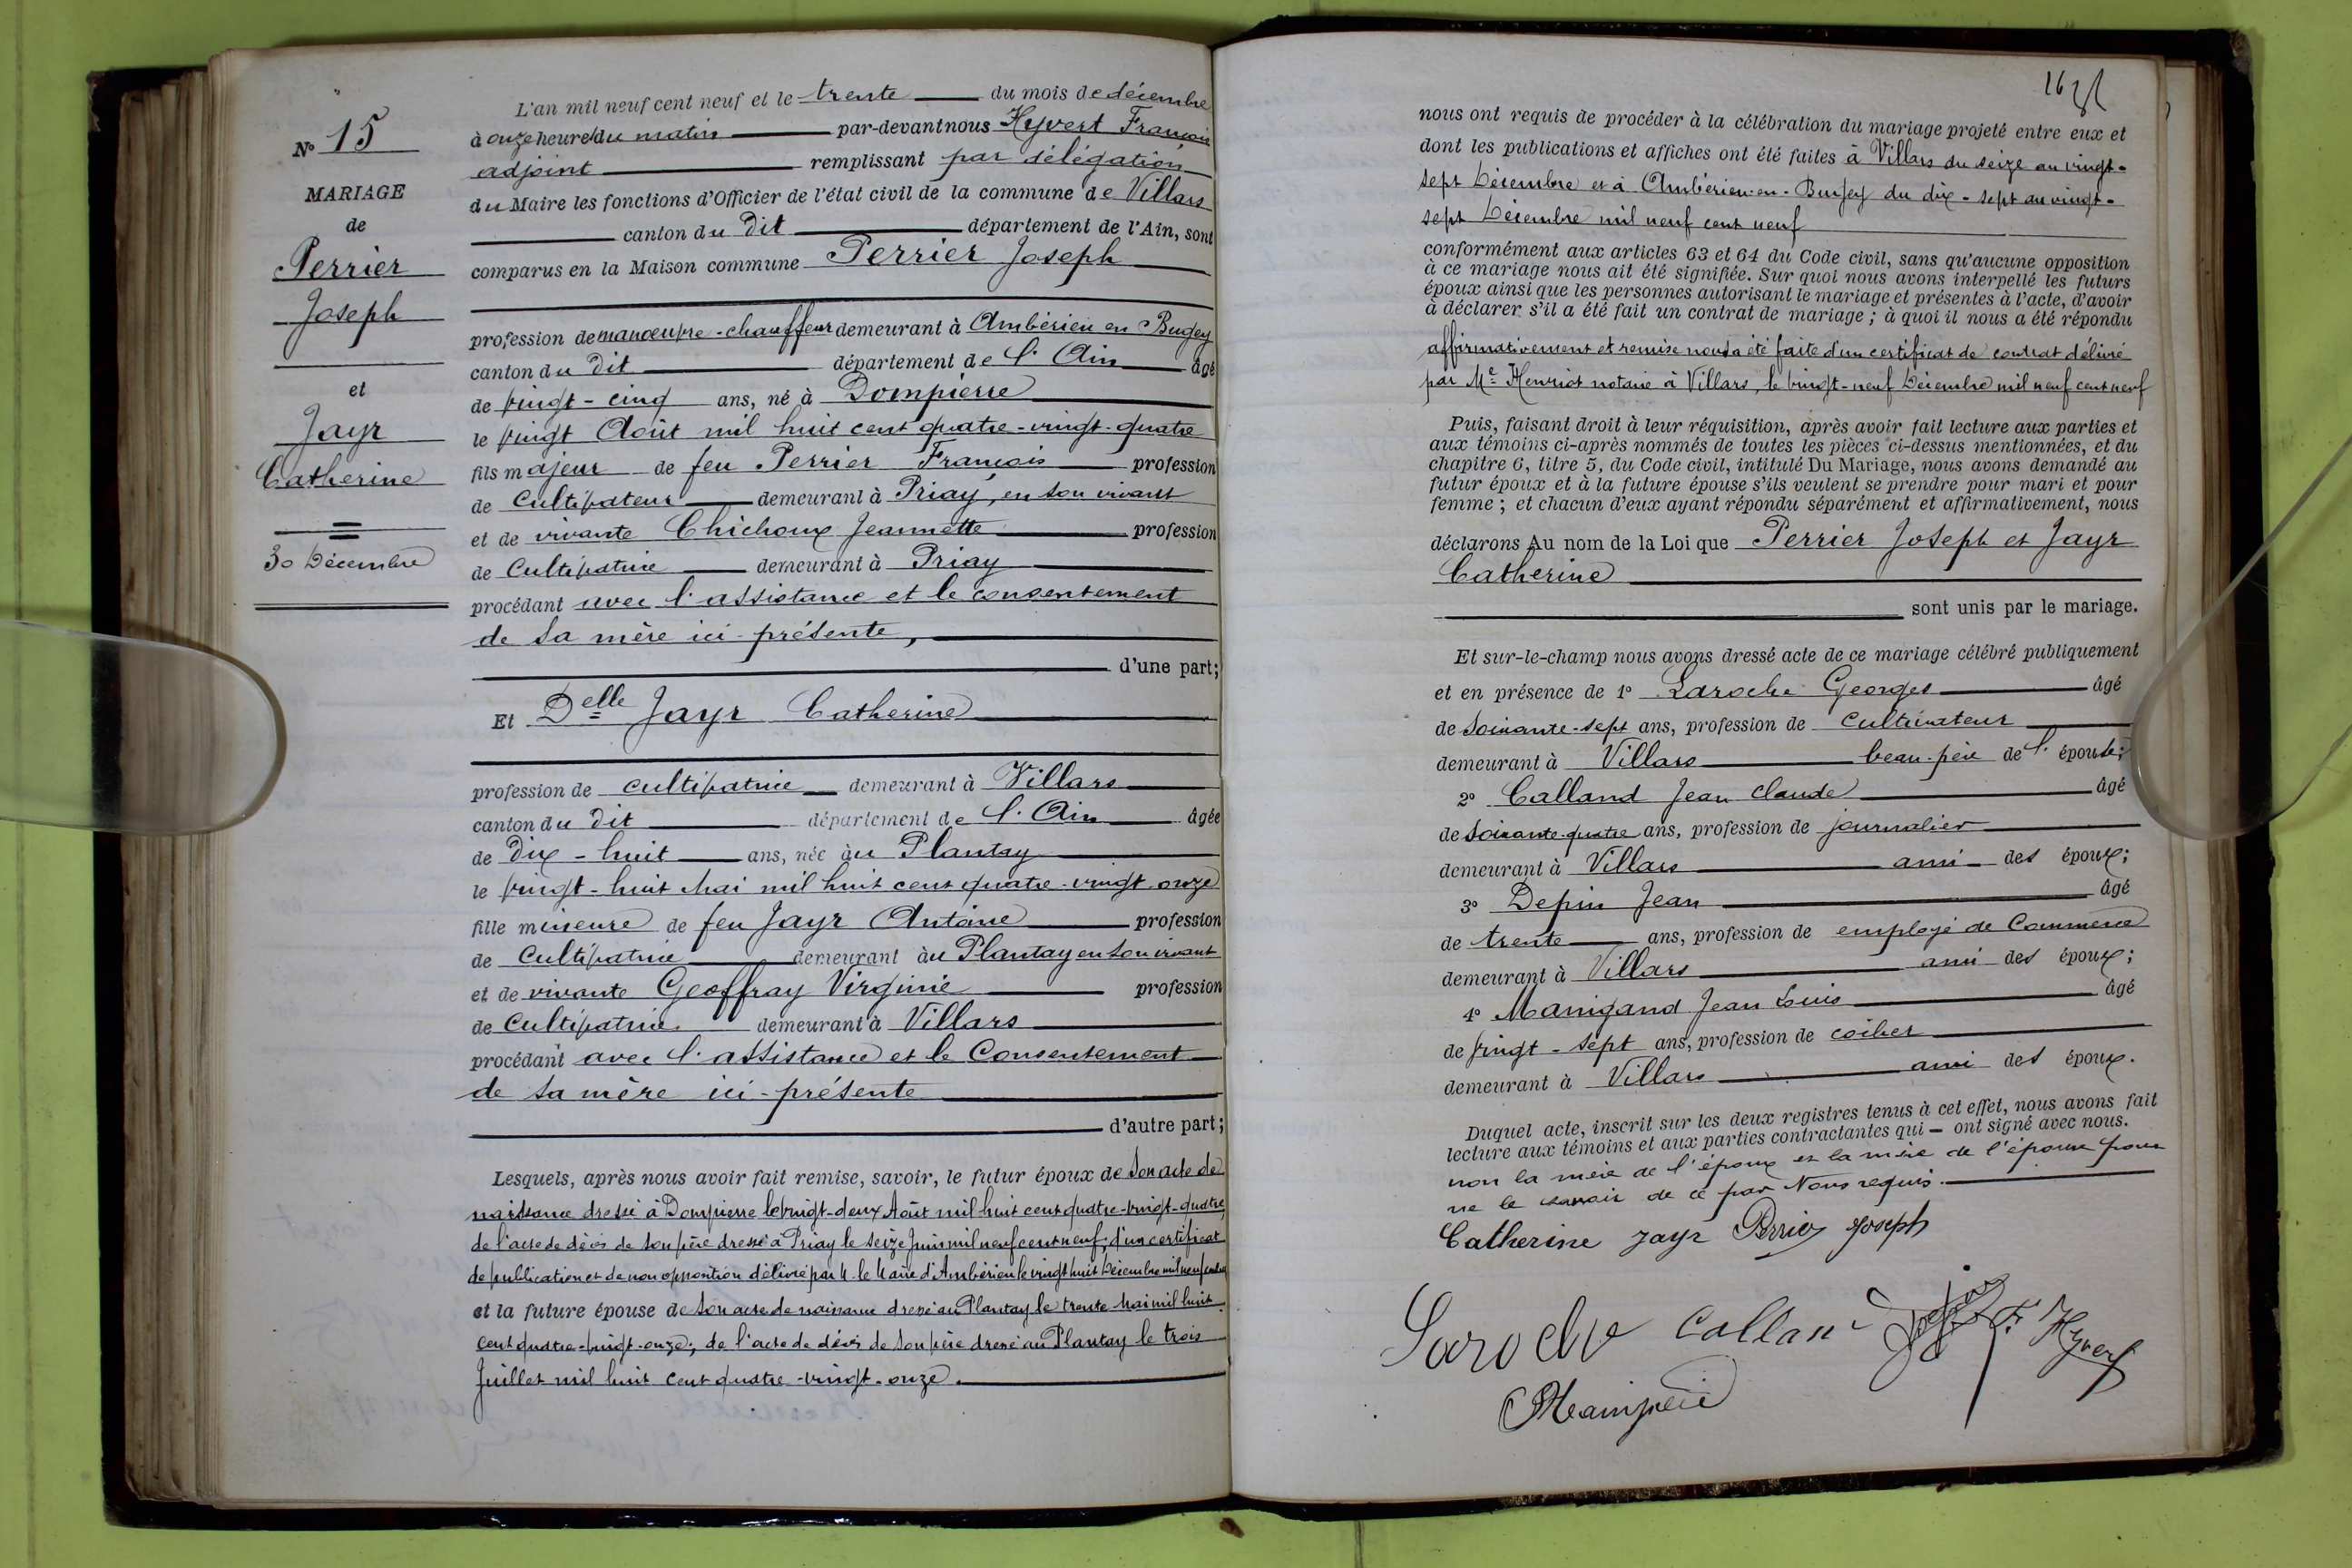 N° 15
MARIAGE
de
Perrier
Joseph
et
Jayr
Catherine
30 Décembre
L'an mil neuf cent neuf et le trente du mois de décembre
à onze heures du matin par-devant nous Hyvert François
adjoint remplissant par délégation
du Maire les fonctions d'Officier de l'état civil de la commune de Villars
canton du dit département de l'Ain, sont
comparus en la Maison commune Perrier Joseph
profession de manoeuvre-chauffeur demeurant à Ambérieu en Bugey
canton du dit département de l'Ain âgé
de vingt-cinq ans, né à Dompierre
le vingt Août mil huit cent quatre-vingt-quatre
fils majeur de feu Perrier François profession
de Cultivateur demeurant à Priay, en son vivant
et de vivante Chichoux Jeannette profession
de Cultivatrice demeurant à Priay
procédant avec l'assistance et le consentement
de sa mère ici-présente,
d'une part;
Et Delle Jayr Catherine
profession de cultivatrice demeurant à Villars
canton du dit département de l'Ain âgée
de dix-huit ans, née au Plantay
le vingt-huit Mai mil huit cent quatre-vingt-onze
fille mineure de feu Jayr Antoine profession
de Cultivatrice demeurant au Plantay en son vivant
et de vivante Geoffray Virginie profession
de Cultivatrice demeurant à Villars
procédant avec l'assistance et le Consentement
de sa mère ici-présente
d'autre part;
Lesquels, après nous avoir fait remise, savoir, le futur époux de son acte de
naissance dressé à Dompierre le vingt-deux Août mil huit cent quatre-vingt-quatre,
de l'acte de décès de son père dressé à Priay le seize Juin mil neuf cent neuf; d'un certificat
de publication et de non opposition délivré par M. le Maire d'Ambérieu le vingt huit Décembre mil neuf cent neuf
et la future épouse de son acte de naissance dressé au Plantay le trente Mai mil huit
cent quatre-vingt-onze; de l'acte de décès de son père dressé au Plantay le trois
Juillet mil huit cent quatre-vingt-onze.
nous ont requis de procéder à la célébration du mariage projeté entre eux et
dont les publications et affiches ont été faites à Villars du seize au vingt-
sept Décembre et à Ambérieu-en-Bugey du dix-sept au vingt-
sept Décembre mil neuf cent neuf
conformément aux articles 63 et 64 du Code civil, sans qu'aucune opposition
à ce mariage nous ait été signifiée. Sur quoi nous avons interpellé les futurs
époux ainsi que les personnes autorisant le mariage et présentes à l'acte, d'avoir
à déclarer s'il a été fait un contrat de mariage; à quoi il nous a été répondu
affirmativement et remise nous a été faite d'un certificat de contrat délivré
par Me Henriot notaire à Villars, le vingt-neuf Décembre mil neuf cent neuf
Puis, faisant droit à leur réquisition, après avoir fait lecture aux parties et
aux témoins ci-après nommés de toutes les pièces ci-dessus mentionnées, et du
chapitre 6, titre 5, du Code civil, intitulé Du Mariage, nous avons demandé au
futur époux et à la future épouse s'ils veulent se prendre pour mari et pour
femme; et chacun d'eux ayant répondu séparément et affirmativement, nous
déclarons Au nom de la Loi que Perrier Joseph et Jayr
Catherine
sont unis par le mariage.
Et sur-le-champ nous avons dressé acte de ce mariage célébré publiquement
et en présence de 1° Laroche Georges âgé
de soixante-sept ans, profession de cultivateur
demeurant à Villars beau-père de l'épouse;
2° Calland Jean Claude âgé
de soixante-quatre ans, profession de journalier
demeurant à Villars ami des époux;
3° Depin Jean âgé
de trente ans, profession de employé de Commerce
demeurant à Villars ami des époux;
4° Manigand Jean Louis âgé
de vingt-sept ans, profession de cocher
demeurant à Villars ami des époux.
Duquel acte, inscrit sur les deux registres tenus à cet effet, nous avons fait
lecture aux témoins et aux parties contractantes qui ont signé avec nous.
non la mère de l'époux et la mère de l'épouse pour
ne le savoir de ce par Nous requis.
Catherine Jayr Perrier Joseph
Laroche Calland F. Hyvert